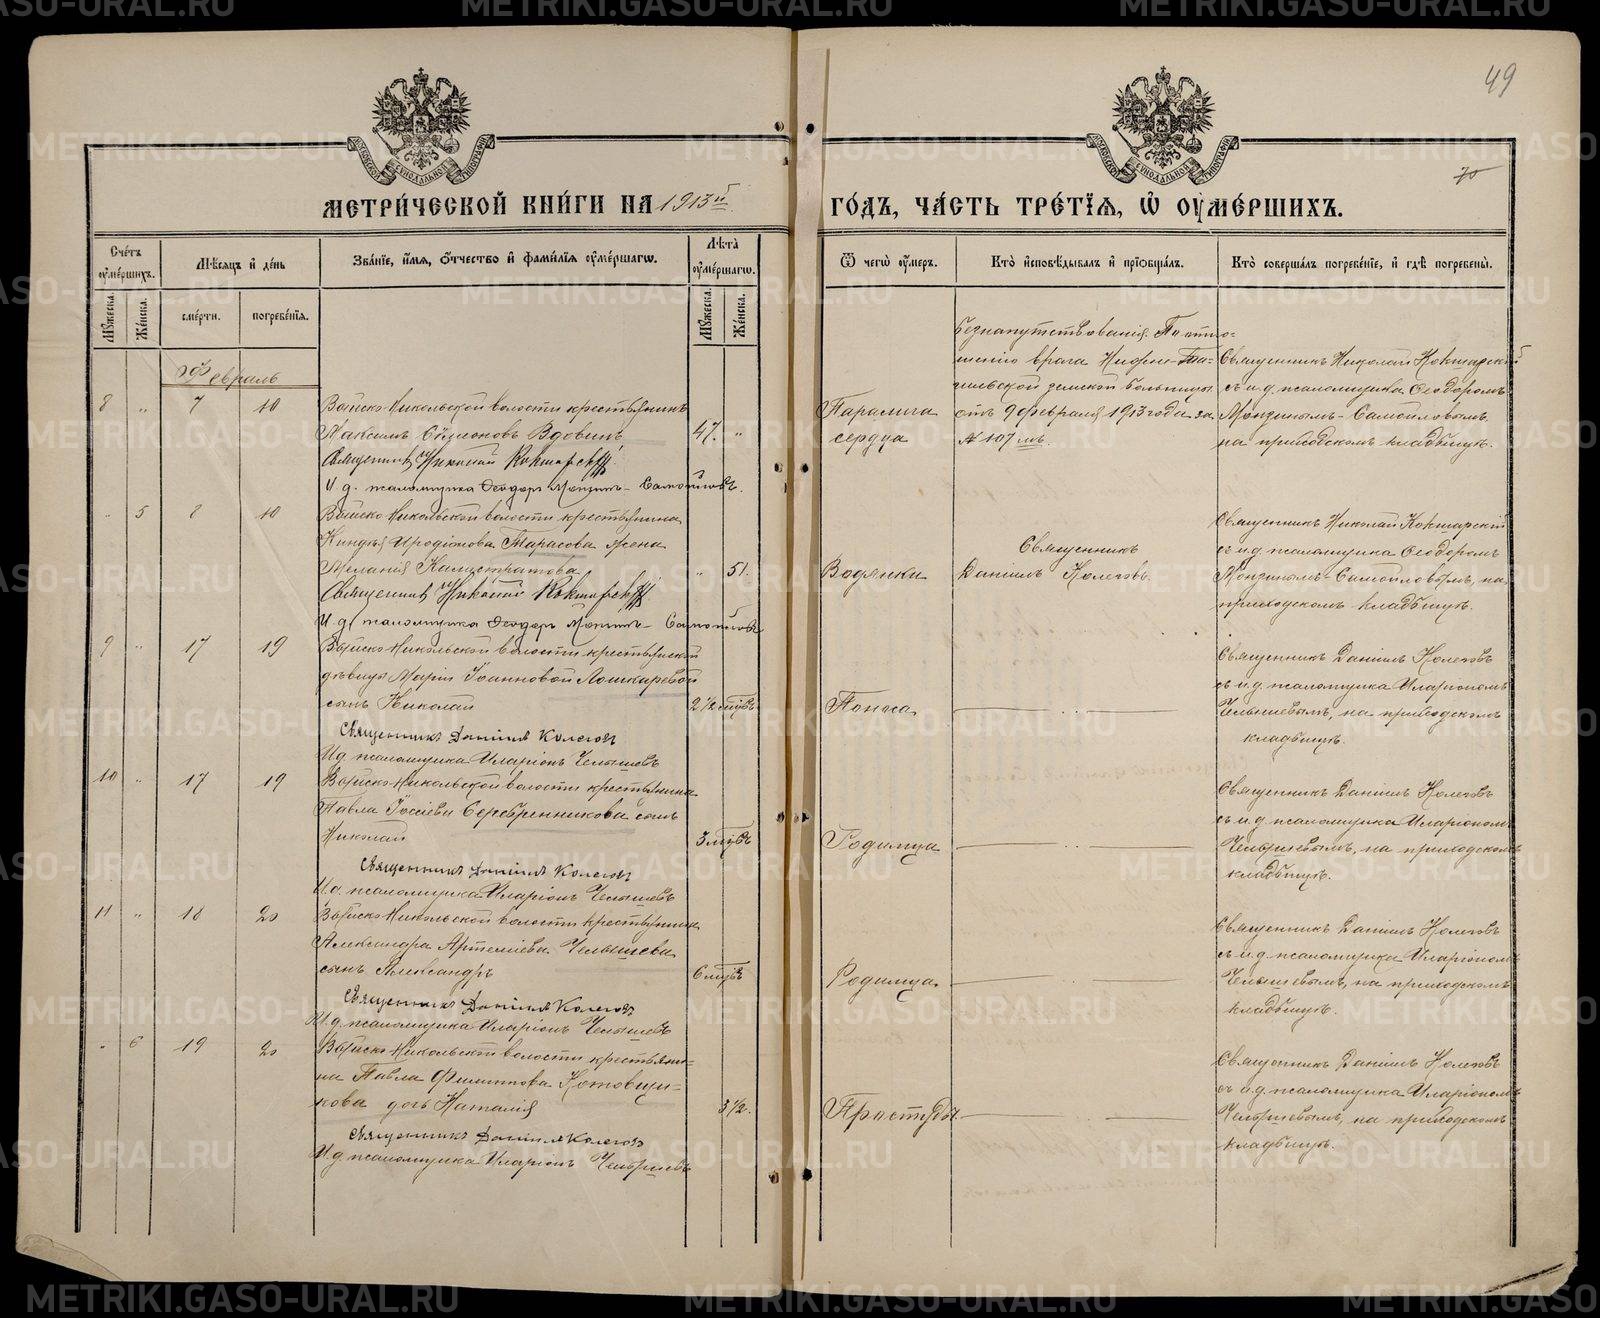 49
70
МЕТРИ́ЧЕСКОЙ КНИ́ГИ НА 1913й
ГО́ДЪ, ЧА́СТЬ ТРЕ́ТІѦ, Ѡ҆ ОУМЕ́РШИХЪ.
Сче́тъ оумершихъ.
Мѣсяцъ и де́нь
Зва́нїе, и́мѧ, о́тчество и фами́лїѧ оуме́ршагѡ.
Лѣ́та оуме́ршагѡ.
Ѿ чегѡ̀ оу́меръ.
Кто̀ и҆сповѣ́дывалъ и҆ прїѡбща́лъ.
Кто̀ соверша́лъ погребе́нїе, и҆ гдѣ̀ погребены̀.
Му́жеска.
Же́нска.
сме́рти.
погребе́нїѧ.
Му́жеска.
Же́нска.
Февраль
8 " 7 10 Выйско-Никольской волости крестьянинъ
Максимъ Сѵмеоновъ Вдовинъ 47. "
Священникъ Николай Кокшарскій
И. д. псаломщика Ѳеодоръ Монзинъ-Самойловъ.
Параличъ
сердца
Безнапутствованія. По отно-
шенію врача Нижне-Та-
гильской земской больницы
отъ 9 февраля 1913 года за
№ 107мъ.
Священникъ Николай Кокшарскій
съ и. д. псаломщика Ѳеодоромъ
Монзинымъ-Самойловымъ,
на приходскомъ кладбищѣ.
" 5 8 10 Выйско-Никольской волости крестьянина
Киндея Иродіонова Тарасова жена
Меланія Калистратова " 51.
Священникъ Николай Кокшарскій
И. д. псаломщика Ѳеодоръ Монзинъ-Самойловъ
Водянки
Священникъ
Даніилъ Колеговъ.
Священникъ Николай Кокшарскій
съ и. д. псаломщика Ѳеодоромъ
Монзинымъ-Самойловымъ, на
приходскомъ кладбищѣ.
9 " 17 19 Выйско-Никольской волости крестьянской
дѣвицы Маріи Іоанновой Лошкаревой
сынъ Николай 2 1/2 мѣсяцъ
Священникъ Даніилъ Колеговъ
И. д. псаломщика Иларіонъ Челышевъ
Поноса
Священникъ Даніилъ Колеговъ
съ и. д. псаломщика Иларіономъ
Челышевымъ, на приходскомъ
кладбищѣ.
10 " 17 19 Выйско-Никольской волости крестьянина
Павла Іосіева Серебренникова сынъ
Николай 3 мѣсяцъ
Священникъ Даніилъ Колеговъ
И. д. псаломщика Иларіонъ Челышевъ
Родимца
Священникъ Даніилъ Колеговъ
съ и. д. псаломщика Иларіономъ
Челышевымъ, на приходскомъ
кладбищѣ.
11 " 18 20 Выйско-Никольской волости крестьянина
Александра Артеміева Челышева
сынъ Александръ 6 мѣсяцъ
Священникъ Даніилъ Колеговъ
И. д. псаломщика Иларіонъ Челышевъ
Родимца
Священникъ Даніилъ Колеговъ
съ и. д. псаломщика Иларіономъ
Челышевымъ, на приходскомъ
кладбищѣ.
" 6 19 20 Выйско-Никольской волости крестьяни-
на Павла Филиппова Котовщи-
кова дочь Наталія 3 1/2.
Священникъ Даніилъ Колеговъ
И. д. псаломщика Иларіонъ Челышевъ
Простуды
Священникъ Даніилъ Колеговъ
съ и. д. псаломщика Иларіономъ
Челышевымъ, на приходскомъ
кладбищѣ.
METRIKI.GASO-URAL.RU